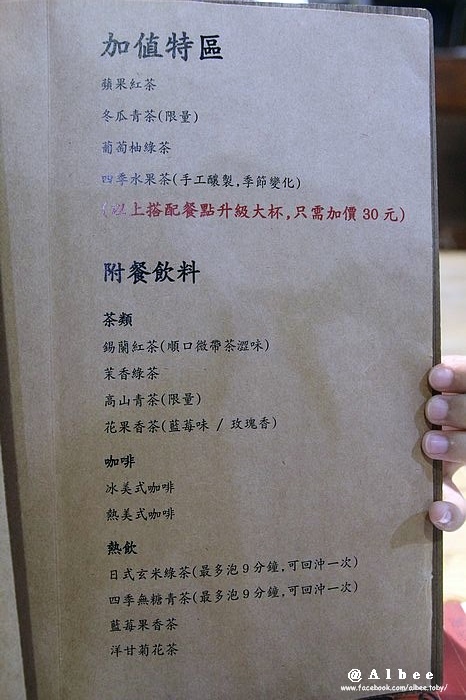 加值特區
蘋果紅茶
冬瓜青茶(限量)
葡萄柚綠茶
四季水果茶(手工釀製,季節變化)
(以上搭配餐點升級大杯,只需加價 30 元)
附餐飲料
茶類
錫蘭紅茶(順口微帶茶澀味)
茉香綠茶
高山青茶(限量)
花果香茶(藍莓味 / 玫瑰香)
咖啡
冰美式咖啡
熱美式咖啡
熱飲
日式玄米綠茶(最多泡9分鐘,可回沖一次)
四季無糖青茶(最多泡9分鐘,可回沖一次)
藍莓果香茶
洋甘菊花茶
@Albee
www.facebook.com/albee.toby/